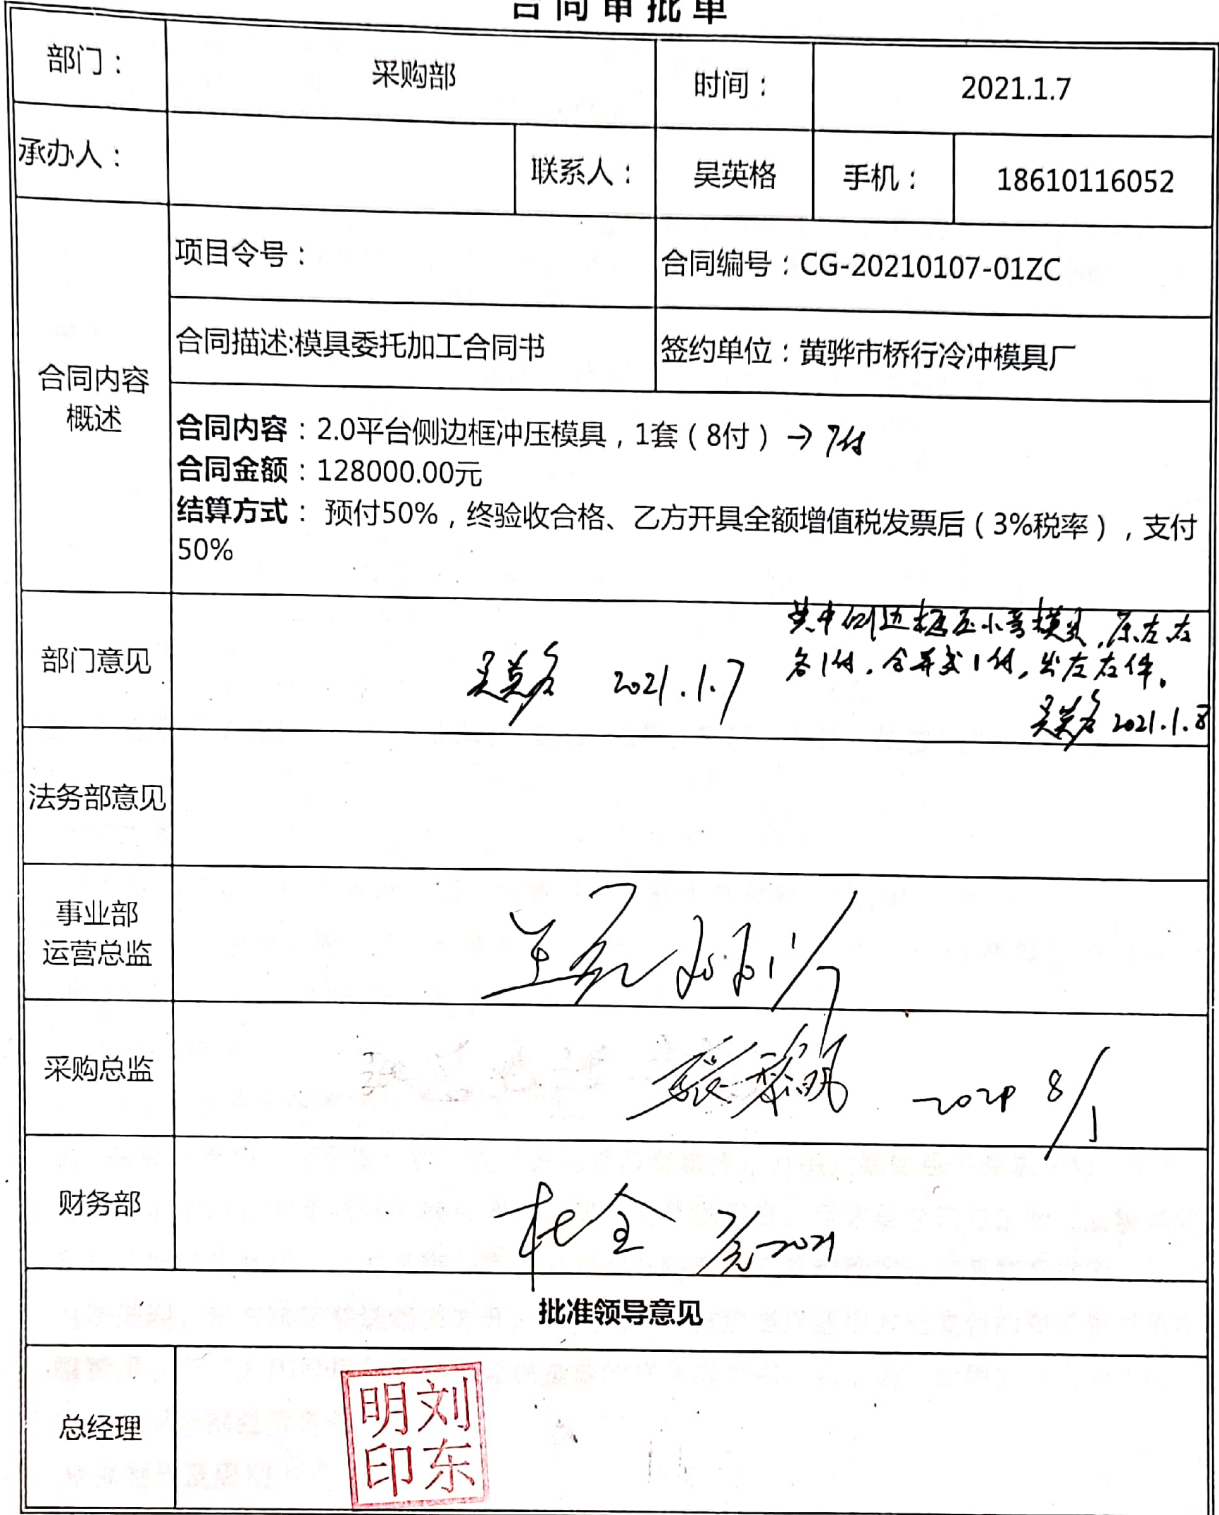 合同审批单
部门： 采购部 时间： 2021.1.7
承办人： 联系人： 吴英格 手机： 18610116052
合同内容
概述
项目令号： 合同编号：CG-20210107-01ZC
合同描述:模具委托加工合同书 签约单位：黄骅市桥行冷冲模具厂
合同内容：2.0平台侧边框冲压模具，1套（8付）→7付
合同金额：128000.00元
结算方式： 预付50%，终验收合格、乙方开具全额增值税发票后（3%税率），支付
50%
部门意见
其中侧边框压小弯模具,原左右
各1付,合并成1付,出左右件。
吴英格 2021.1.7
吴英格 2021.1.8
法务部意见
事业部
运营总监
采购总监
财务部 杜全 2021
批准领导意见
总经理
明刘
印东